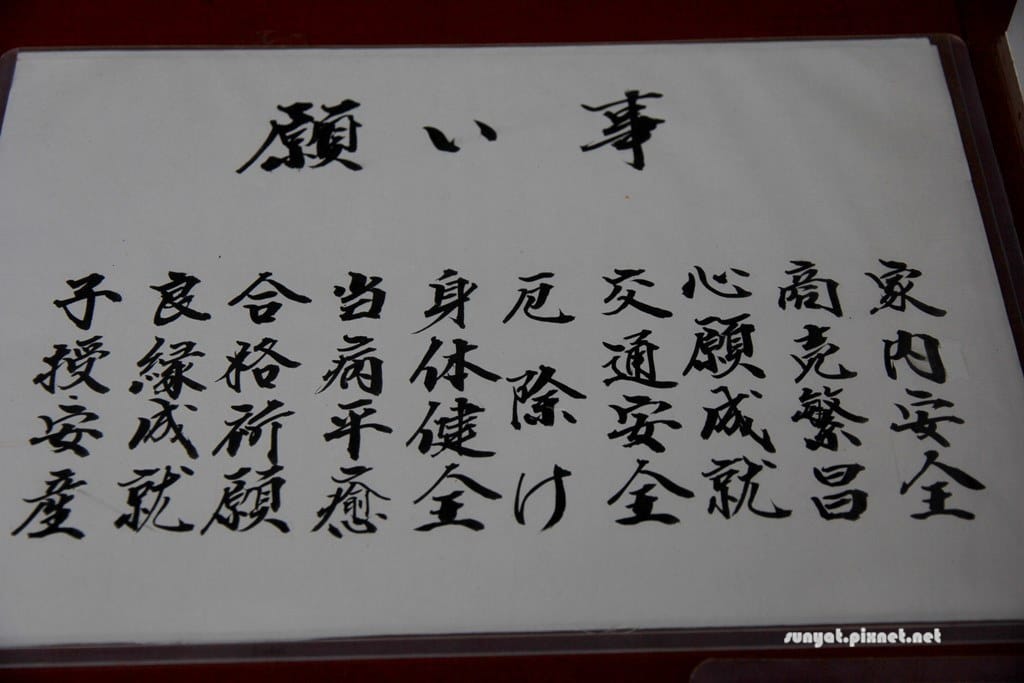 願い事
家内安全
商売繁昌
心願成就
交通安全
厄除け
身体健全
当病平癒
合格祈願
良縁成就
子授安産
sunyat.pixnet.net